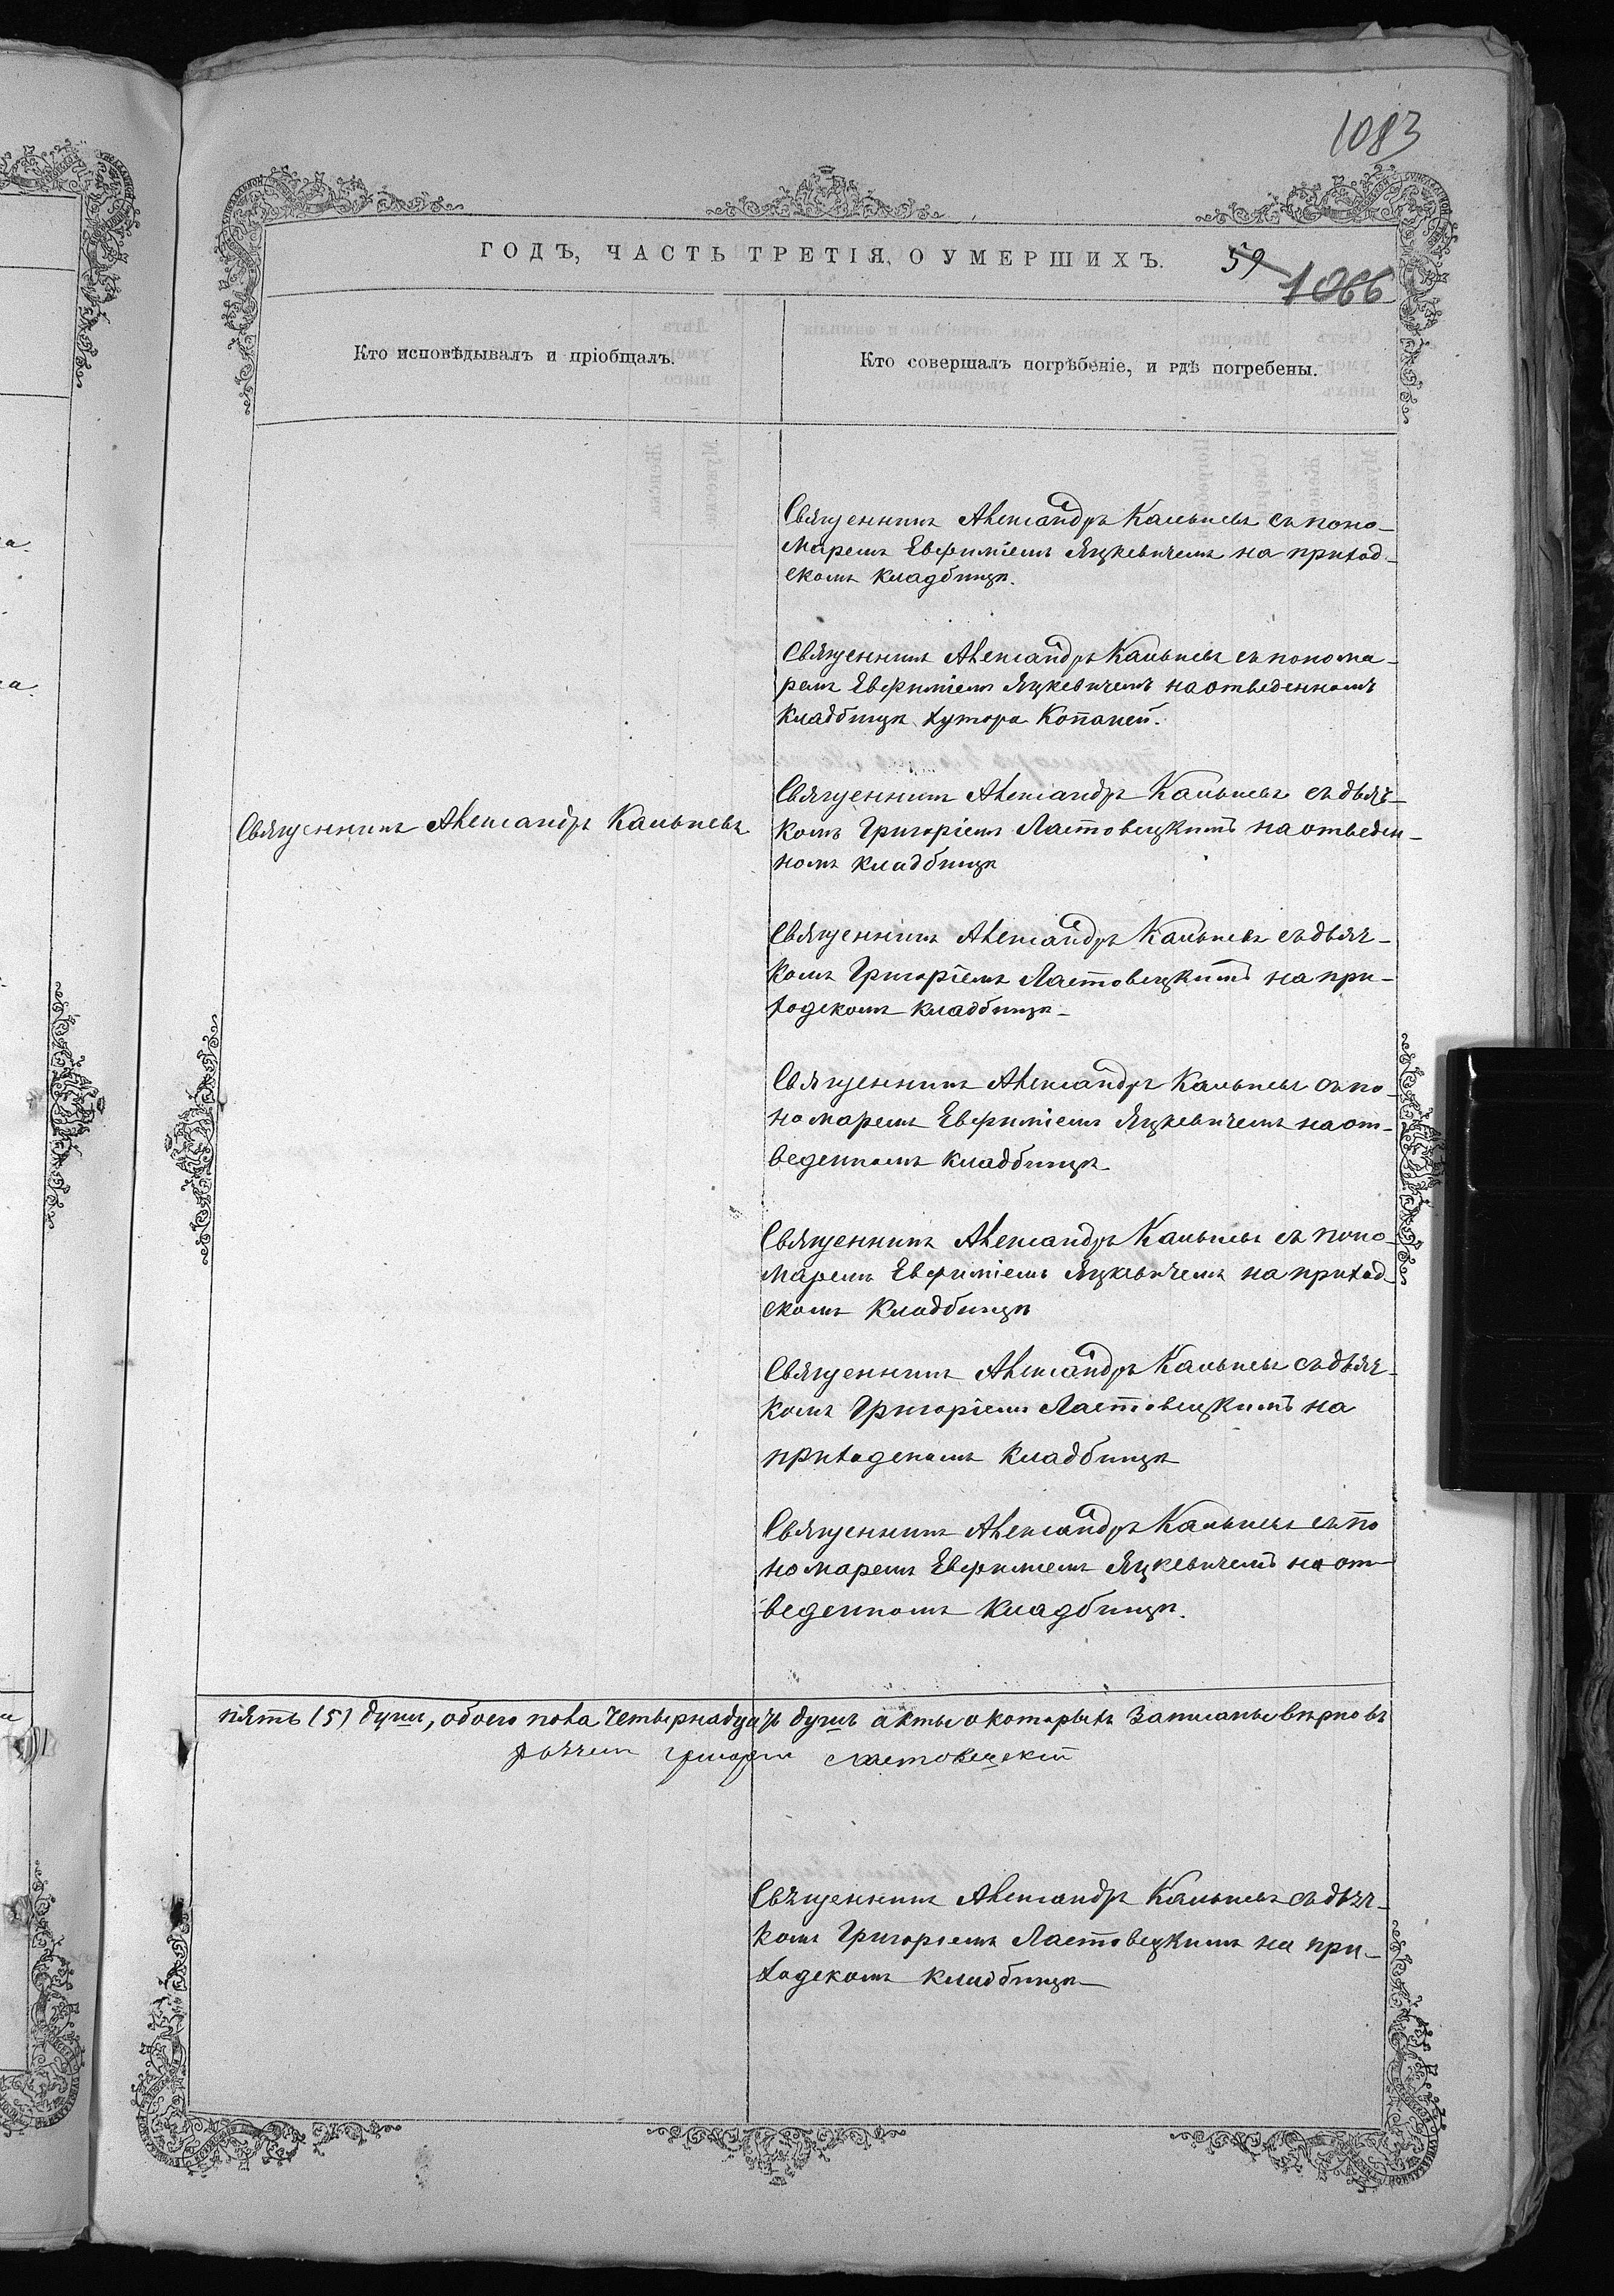 1083
ГОДЪ, ЧАСТЬ ТРЕТІЯ, О УМЕРШИХЪ.
59
1066
Кто исповѣдывалъ и пріобщалъ.
Кто совершалъ погрѣбеніе, и гдѣ погребены.
Священникъ Александръ Кальневъ съ поно-
маремъ Евфиміемъ Яцкевичемъ на приход-
скомъ кладбищѣ.
Священникъ Александръ Кальневъ съ понома-
ремъ Евфиміемъ Яцкевичемъ на отведенномъ
кладбищѣ хутора Копаней.
Священникъ Александръ Кальневъ
Священникъ Александръ Кальневъ съ дьяч-
комъ Григоріемъ Ластовецкимъ на отведен-
номъ кладбищѣ
Священникъ Александръ Кальневъ съ дьяч-
комъ Григоріемъ Ластовецкимъ на при-
ходскомъ кладбищѣ
Священникъ Александръ Кальневъ съ по
номаремъ Евфиміемъ Яцкевичемъ на от-
веденномъ кладбищѣ.
Священникъ Александръ Кальневъ съ поно-
маремъ Евфиміемъ Яцкевичемъ на приход-
скомъ кладбищѣ
Священникъ Александръ Кальневъ съ дьяч-
комъ Григоріемъ Ластовецкимъ на
приходскомъ кладбищѣ
Священникъ Александръ Кальневъ съ по
номаремъ Евфиміемъ Яцкевичемъ на от-
веденномъ кладбищѣ.
пять (5) душъ, обоего пола четырнадцать душъ акты о которыхъ записаны вѣрно въ
Дьячекъ Григорій Ластовецкій
Священникъ Александръ Кальневъ съ дьяч-
комъ Григоріемъ Ластовецкимъ на при-
ходскомъ кладбищѣ